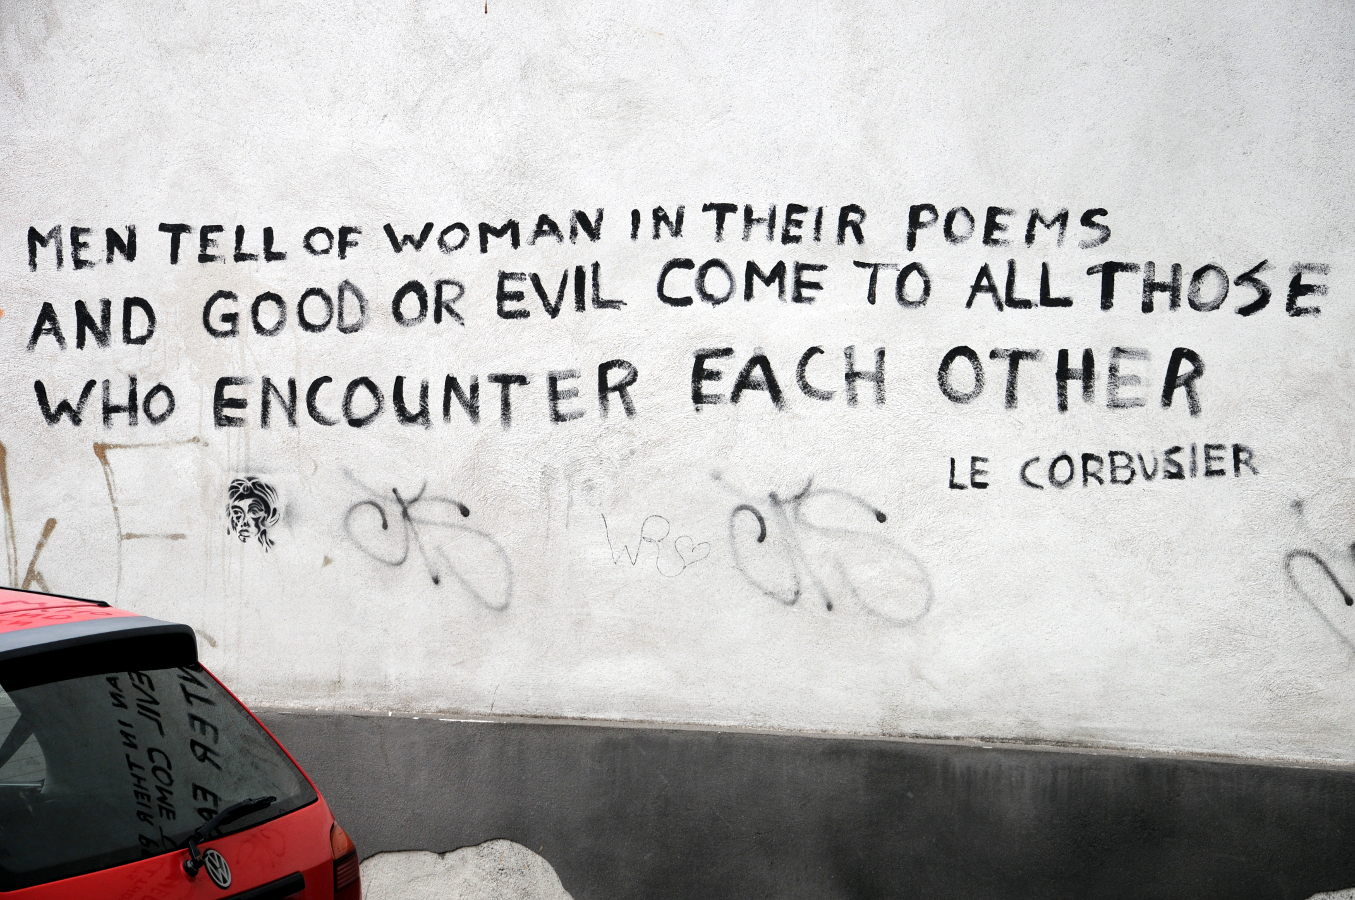 MEN TELL OF WOMAN IN THEIR POEMS
AND GOOD OR EVIL COME TO ALL THOSE
WHO ENCOUNTER EACH OTHER
LE CORBUSIER